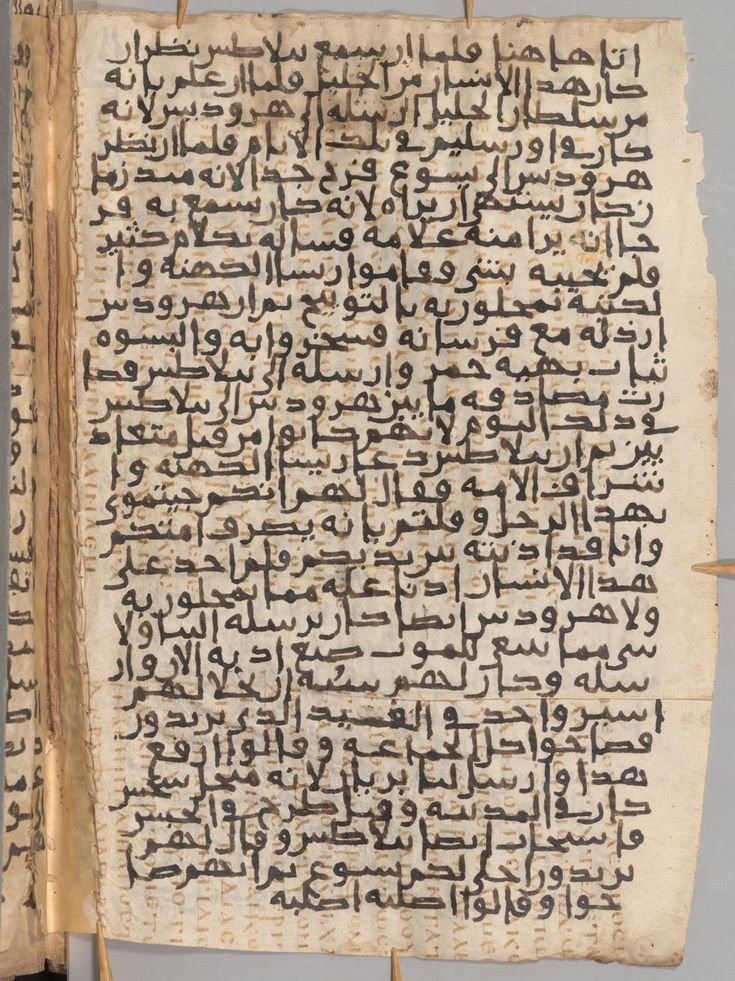 اتا هاهنا فلما ان سمع بيلاطس نظر ان
كان هذا الانسان من الجليل فلما ان علم بانه
من سلطان الجليل ارسله الى هرودس لانه
كان في اورسليم في تلك الايام فلما ان نظر
هرودس الى يسوع فرح جدا لانه منذ زما
ن كان يشتهي ان يراه لانه كان سمع به فر
جا انه يرا منه علامه فساله بكلام كثير
فلم يجيبه بشي وقاموا ريسا الكهنه وا
لكتبه يمحلون به بالتوبيخ ثم ان هرودس
ارذله مع فرسانه فسخروا به والبسوه
ثياب بهيه حمر وارسله الى بيلاطس فصا
رت مصادقه ما بين هرودس الى بيلاطس
في ذلك اليوم لانهم كانوا من قبل متعاد
يين ثم ان بيلاطس دعا ريسا الكهنه وا
شراف الامه فقال لهم انكم جيتموني
بهذا الرجل وقلتم بانه يصرف امتكم
وانا قد اذنته بين يديكم فلم اجد على
هذا الانسان ادنا عله مما تمحلون به
ولا هرودس ايضا كان يرسله الينا ولا
شي مما للموت صنع ادبه الان وار
سله وكان لهم سنيه ان يخلا لهم
اسير واحد في الذي يريدون
فصاحوا كل الجماعه وقالوا ارفع
هذا وارسل لنا بربان لانه من اجل سجس
كان في المدينه وقتل طرح في الحبس
فاستجاب ايضا بيلاطس وقال لهم
يريدون اخلي لكم يسوع ثم انهم صا
حوا وقالوا اصلبه اصلبه